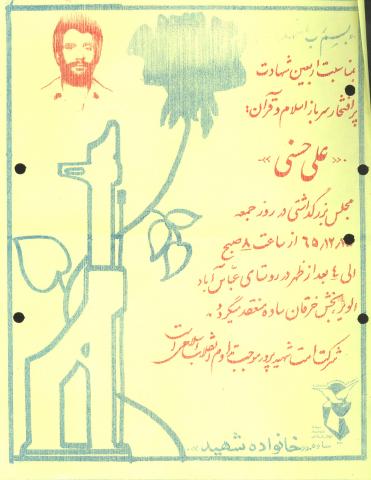 بمناسبت اربعین شهادت
پرافتخار سرباز اسلام و قرآن:
«علی حسنی»
مجلس بزرگداشتی در روز جمعه
۶۵،۱۲، از ساعت ۸ صبح
الی ٤ بعد از ظهر در روستای عباس آباد
بخش خرقان ساوه منعقد میگردد.
شرکت امت شهید پرور موجب تداوم انقلاب اسلامی است
خانواده شهید